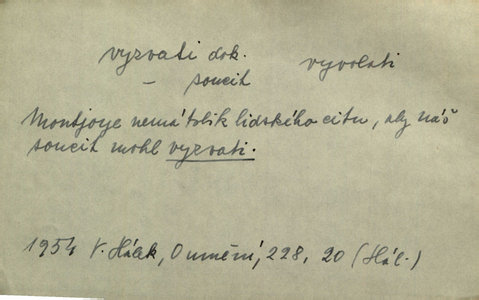 vyzvati dok. vyvolati
– soucit
Montjoye nemá tolik lidského citu, aby náš
soucit mohl vyzvati.
1954 V. Hálek, O umění, 228, 20 (Hál.)